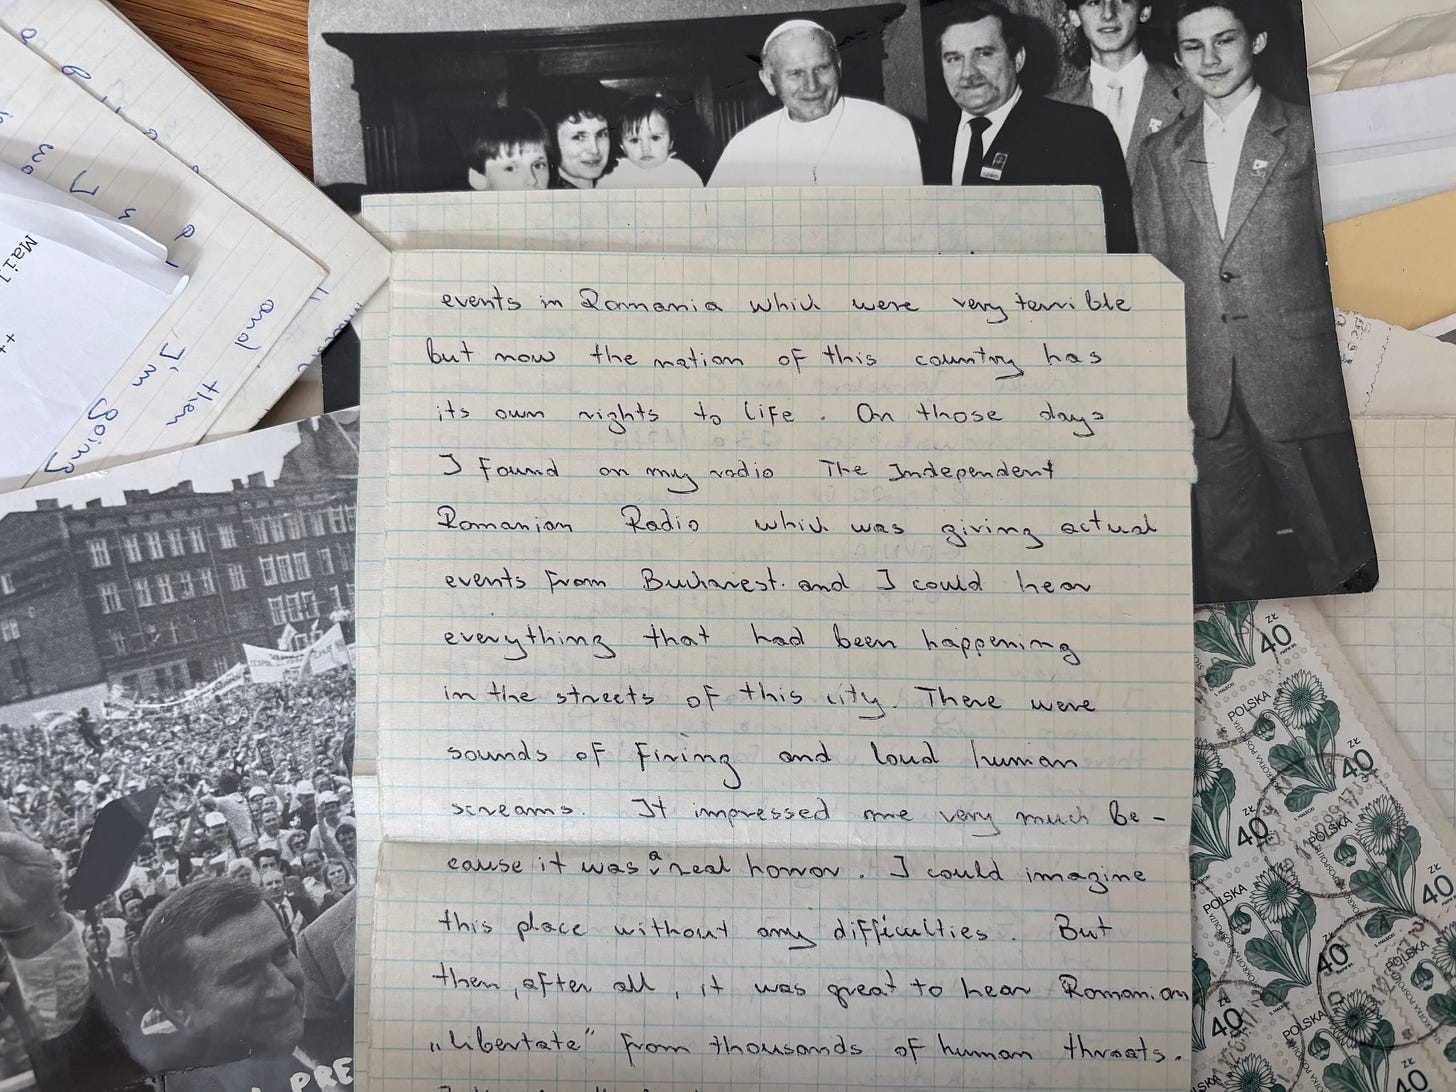 events in Romania which were very terrible
but now the nation of this country has
its own rights to life. On those days
I found on my radio The Independent
Romanian Radio which was giving actual
events from Bucharest. and I could hear
everything that had been happening
in the streets of this city. There were
sounds of firing and loud human
screams. It impressed me very much be-
cause it was a real horror. I could imagine
this place without any difficulties. But
then, after all, it was great to hear Romanian
„libertate" from thousands of human throats.
and
then
I'm going
Mail
PRE
POLSKA
ZŁ 40
POLSKA
ZŁ 40
POLSKA
ZŁ 40
POLSKA
40
40